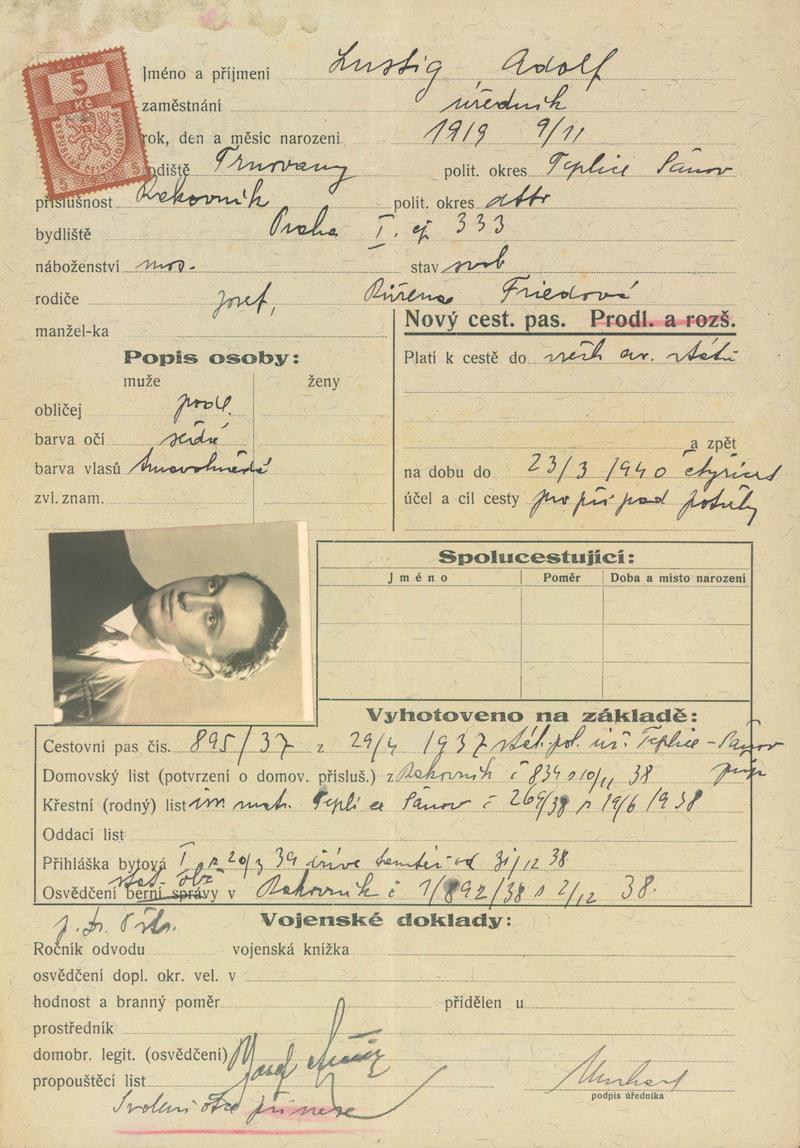 KOLEK
5
Kč
REPUBLIKA ČESKOSLOVENSKÁ
5 5
Jméno a příjmení Lustig, Adolf
zaměstnání úředník
rok, den a měsíc narození 1919 9/11
rodiště Trnovany polit. okres Teplice Šanov
příslušnost Rakovník polit. okres dtto
bydliště Praha I. čp 333
náboženství mos. stav svob
rodiče Josef, Růžena Friedová
manžel-ka
Nový cest. pas. Prodl. a rozš.
Popis osoby:
muže ženy
obličej podl.
barva očí šedé
barva vlasů tmavohnědé
zvl. znam.
Platí k cestě do všech ev. států
a zpět
na dobu do 23/3 1940 čtyřicet
účel a cíl cesty pro případ potřeby
Spolucestující:
Jméno Poměr Doba a misto narození
Vyhotoveno na základě:
Cestovní pas čís. 895/37 z 29/4 1937 stát. pol. úř. Teplice-Šanov
Domovský list (potvrzení o domov. přísluš.) z Rakovník č 834 z 10/11 38
Křestní (rodný) list isr. matr. Teplice Šanov č 269/38 z 19/6 1938
Oddací list
Přihláška bytová I z 20/3 39 dříve tamtéž od 31/12 38
stát. obč
Osvědčení berní správy v Rakovník č 1/892/38 z 2/12 38.
Vojenské doklady:
Ročník odvodu vojenská knížka
osvědčení dopl. okr. vel. v
hodnost a branný poměr přídělen u
prostředník
domobr. legit. (osvědčení) Josef
propouštěcí list
podpis úředníka
Svolení otce přinese